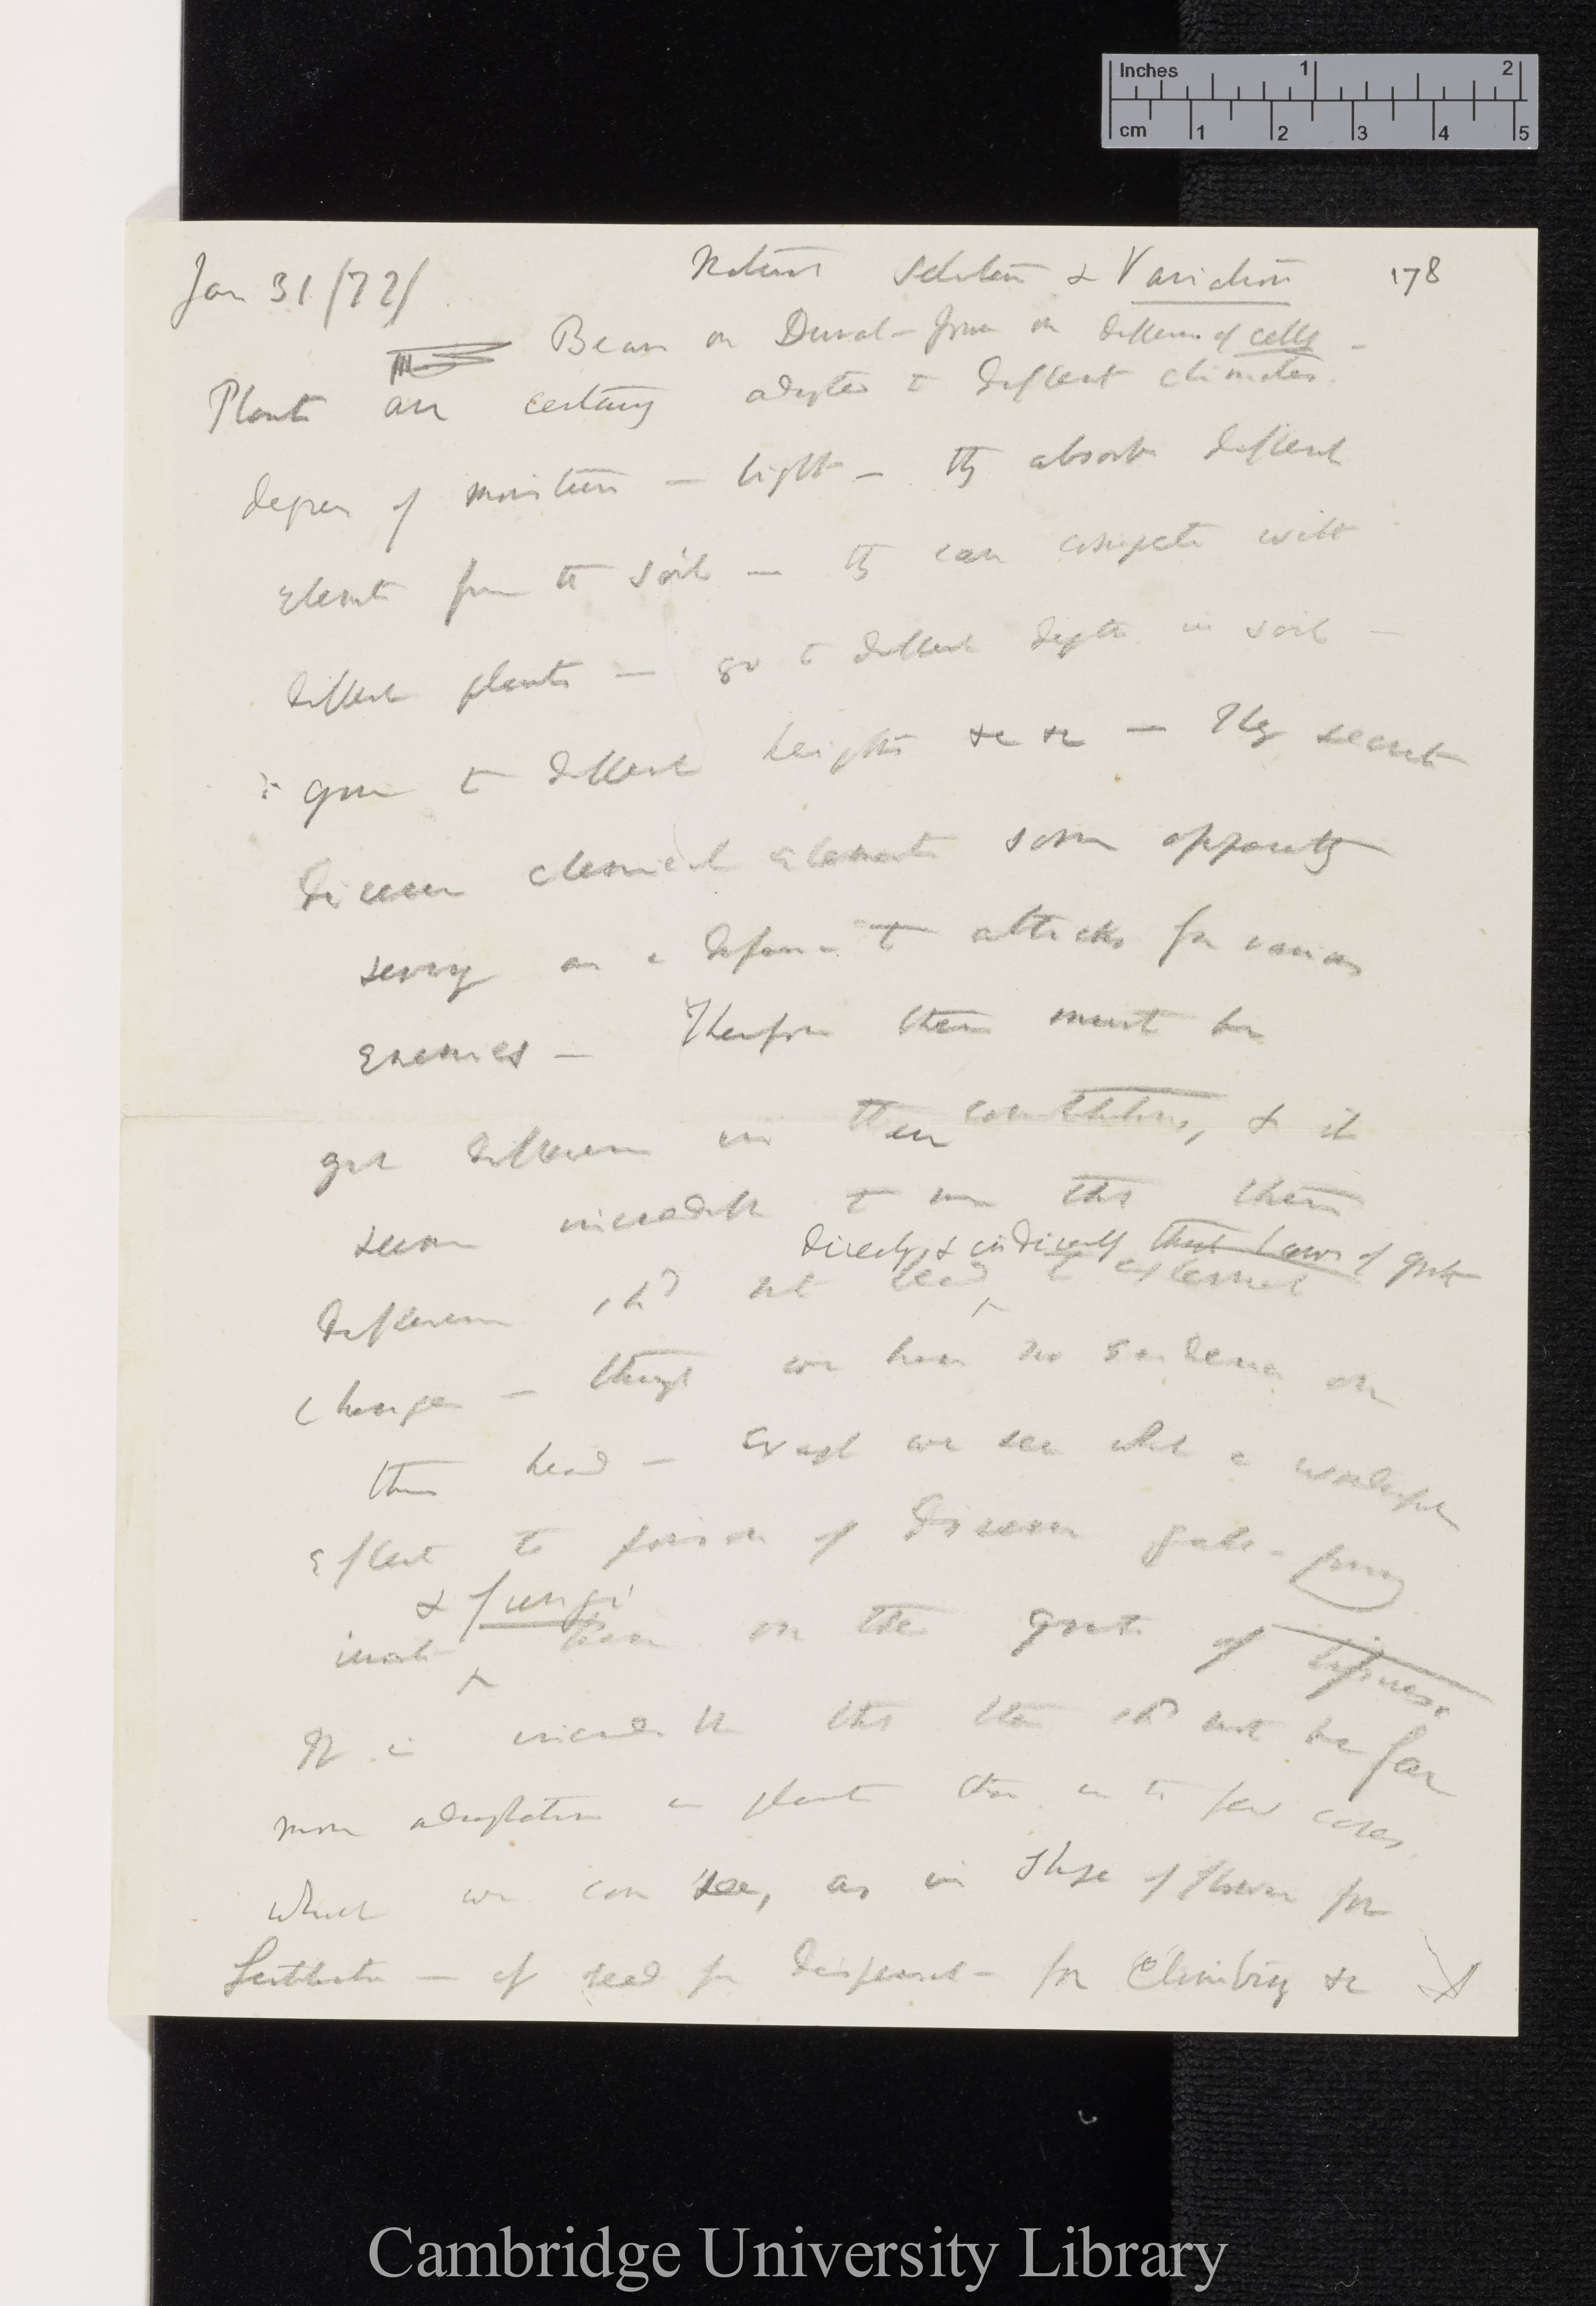 Inches 1 2
cm 1 2 3 4 5
Jan 31/72/ Natural Selection & Variation 178
Bears on Duval-Jouve on difference of cells —
Plants are certainly adapted to different climates.
degrees of moisture — light — they absorb different
elements from the soil — they can compete with
different plants — go to different depths in soil —
grow to different heights &c &c — They secrete
diverse chemical elements some apparently
serving as a defence to attacks from various
enemies — Therefore there must be
great differences in their constitutions, & it
seems incredible to me that these
directly & indirectly through Laws of growth
differences shd not lead to external
changes — though we have no evidence on
this head — except we see what a wonderful
effect the poison of diverse gall-forming
& fungi
insects have on the growth of tissues.
It is incredible that there shd not be far
more adaptation in plants than in the few cases,
which we can see, as in shape of flower for
fertilisation — of seed for dispersal — for Climbing &c
Cambridge University Library